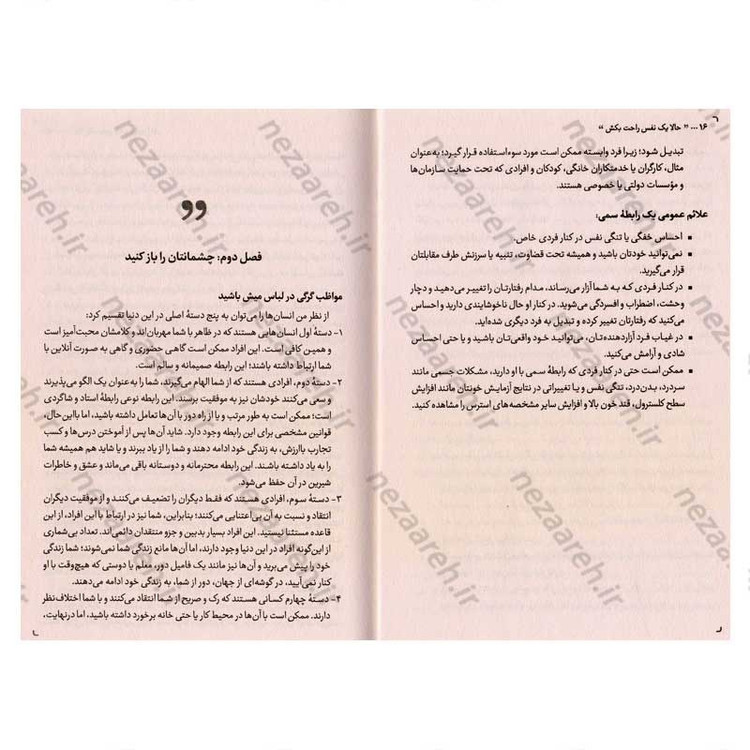 ۱۶ ... " حالا یک نفس راحت بکش "
تبدیل شود؛ زیرا فرد وابسته ممکن است مورد سوءاستفاده قرار گیرد؛ به‌عنوان
مثال، کارگران یا خدمتکاران خانگی، کودکان و افرادی که تحت حمایت سازمان‌ها
و مؤسسات دولتی یا خصوصی هستند.
علائم عمومی یک رابطهٔ سمی:
▪ احساس خفگی یا تنگی نفس در کنار فردی خاص.
▪ نمی‌توانید خودتان باشید و همیشه تحت قضاوت، تنبیه یا سرزنش طرف مقابلتان
قرار می‌گیرید.
▪ در کنار فردی کـه به شمـا آزار می‌رساند، مدام رفتارتـان را تغییـر می‌دهید و دچار
وحشت، اضطراب و افسردگی می‌شوید. در کنار او حال ناخوشایندی دارید و احساس
می‌کنید که رفتارتان تغییر کرده و تبدیل به فرد دیگری شده‌اید.
▪ در غیـاب فـرد آزاردهنده‌تـان، می‌توانیـد خـود واقعی‌تـان باشید و یا حتی احساس
شادی و آرامش می‌کنید.
▪ ممکن است حتی در کنار فردی که رابطهٔ سمی با او دارید، مشکلات جسمی مانند
سردرد، بدن‌درد، تنگی نفس و یا تغییراتی در نتایج آزمایش خونتان مانند افزایش
سطح کلسترول، قند خون بالا و افزایش سایر مشخصه‌های استرس را مشاهده کنید.
فصل دوم: چشمانتان را باز کنید
مواظب گرگی در لباس میش باشید
از نظر من انسان‌ها را می‌توان به پنج دستهٔ اصلی در این دنیا تقسیم کرد:
۱- دستهٔ اول انسان‌هایی هستند که در ظاهر با شما مهربان‌اند و کلامشان محبت‌آمیز است
و همین کافی است. این افراد ممکن است گاهی حضوری و گاهی به صورت آنلاین با
شما ارتباط داشته باشند؛ این رابطه صمیمانه و سالم است.
۲- دستهٔ دوم، افرادی هستند که از شما الهام می‌گیرند، شما را به‌عنوان یک الگو می‌پذیرند
و سعی می‌کنند خودشان نیز به موفقیت برسند. این رابطه نوعی رابطهٔ استاد و شاگردی
است؛ ممکن است به طور مرتب و یا از راه دور با آن‌ها تعامل داشته باشید، اما بااین‌حال،
قوانین مشخصی برای این رابطه وجود دارد. شاید آن‌ها پس از آموختن درس‌ها و کسب
تجارب باارزش، به زندگی خود ادامه دهند و شما را از یاد ببرند و یا شاید هم همیشه شما
را به یاد داشته باشند. این رابطه محترمانه و دوستانه باقی می‌ماند و عشق و خاطرات
شیرین در آن حفظ می‌شود.
۳- دستهٔ سوم، افرادی هستند که فقط دیگران را تضعیف می‌کننـد و از موفقیت دیگران
انتقاد و نسبت به آن بی‌اعتنایی می‌کنند؛ بنابراین، شما نیز در ارتباط با این افراد، از این
قاعده مستثنا نیستید. این افراد بسیار بدبین و جزو منتقدان دائمی‌اند. تعداد بی‌شماری
از این‌گونه افراد در این دنیا وجود دارند، اما آن‌ها مانع زندگی شما نمی‌شوند؛ شما زندگی
خود را پیش می‌برید و آن‌ها نیز مانند یک فامیل دور، معلم یا دوستی که هیچ‌وقت با او
کنار نمی‌آیید، در گوشه‌ای از جهان، دور از شما، به زندگی خود ادامه می‌دهند.
۴- دستهٔ چهارم کسانی هستند که رک و صریح از شما انتقاد می‌کنند و با شما اختلاف‌نظر
دارند. ممکن است با آن‌ها در محیط کار یا حتی خانه برخورد داشته باشید، اما درنهایت،
nezaareh.ir
nezaareh.ir
nezaareh.ir
nezaareh.ir
nezaareh.ir
nezaareh.ir
nezaareh.ir
nezaareh.ir